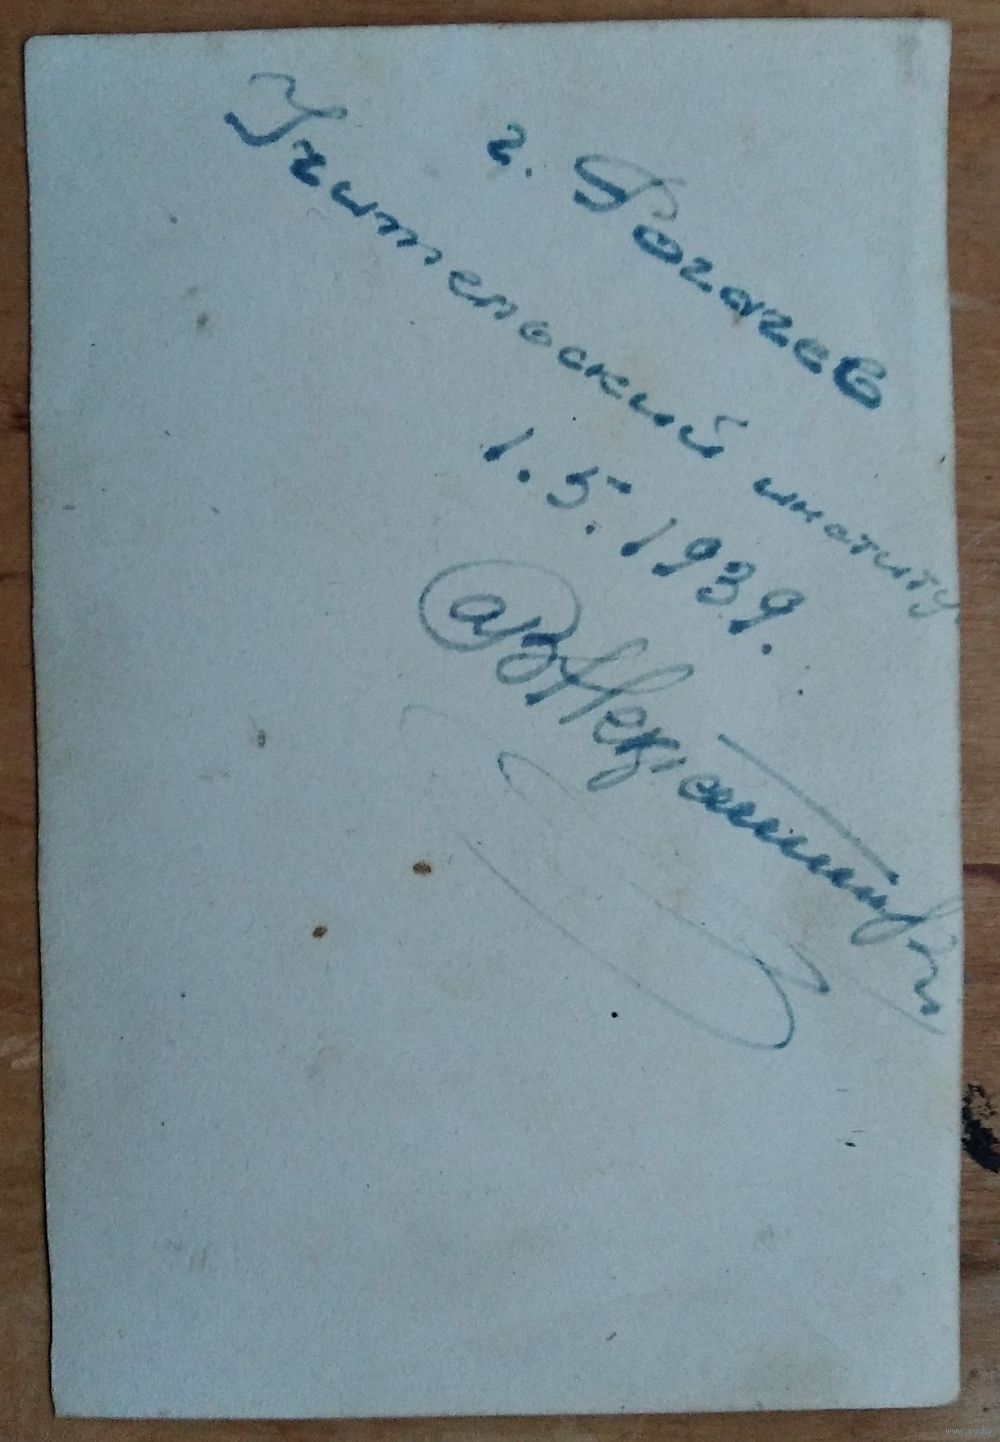 г. Рогачев
Учительский институ
1. 5. 1939.